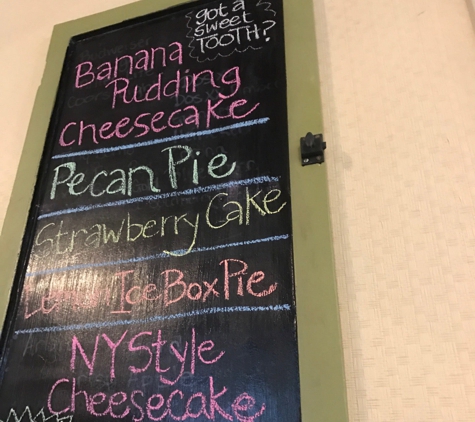 got a
sweet
TOOTH?
Banana
Pudding
Cheesecake
Pecan Pie
Strawberry Cake
Lemon Ice Box Pie
NY Style
Cheesecake